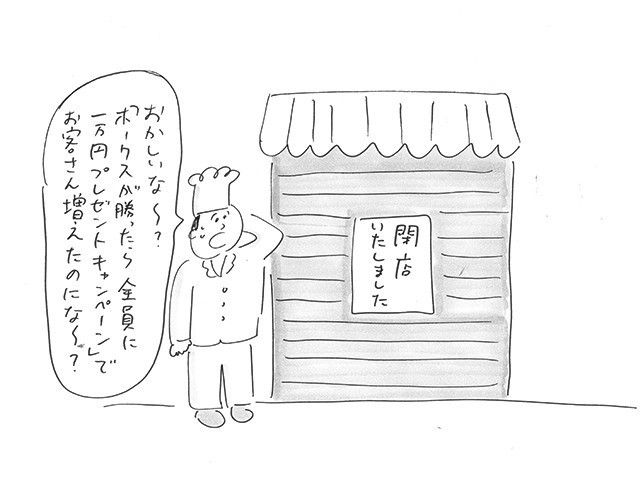 おかしいな〜?
「ホークスが勝ったら全員に
一万円プレゼントキャンペーン」で
お客さん増えたのにな〜?
閉店
いたしました